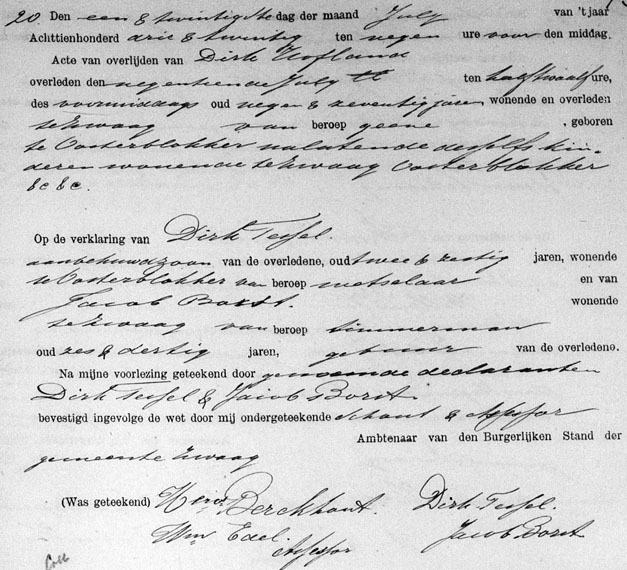 20. Den een & twintigste dag der maand July van 't jaar
Achttienhonderd drie & twintig ten negen ure voor den middag.
Acte van overlijden van Dirk Hofland
overleden den negentiende July ten half twaalf ure,
des voormiddags oud negen & zeventig jaren wonende en overleden
te Zwaag van beroep geene , geboren
te Oosterblokker nalatende deszelfs kin-
deren wonende te Zwaag Oosterblokker
&c &c.
Op de verklaring van Dirk Tessel.
aanbehuwdzoon van de overledene, oud twee & zestig jaren, wonende
te Oosterblokker van beroep metselaar en van
Jacob Borst. wonende
te Zwaag van beroep timmerman
oud zes & dertig jaren, gebuur van de overledene.
Na mijne voorlezing geteekend door genoemde declaranten
Dirk Tessel & Jacob Borst.
bevestigd ingevolge de wet door mij ondergeteekende Schout & Assessor
Ambtenaar van den Burgerlijken Stand der
gemeente Zwaag
(Was geteekend) Berckhout. Dirk Tessel.
Wm Edel. Jacob Borst
Assessor
Coll